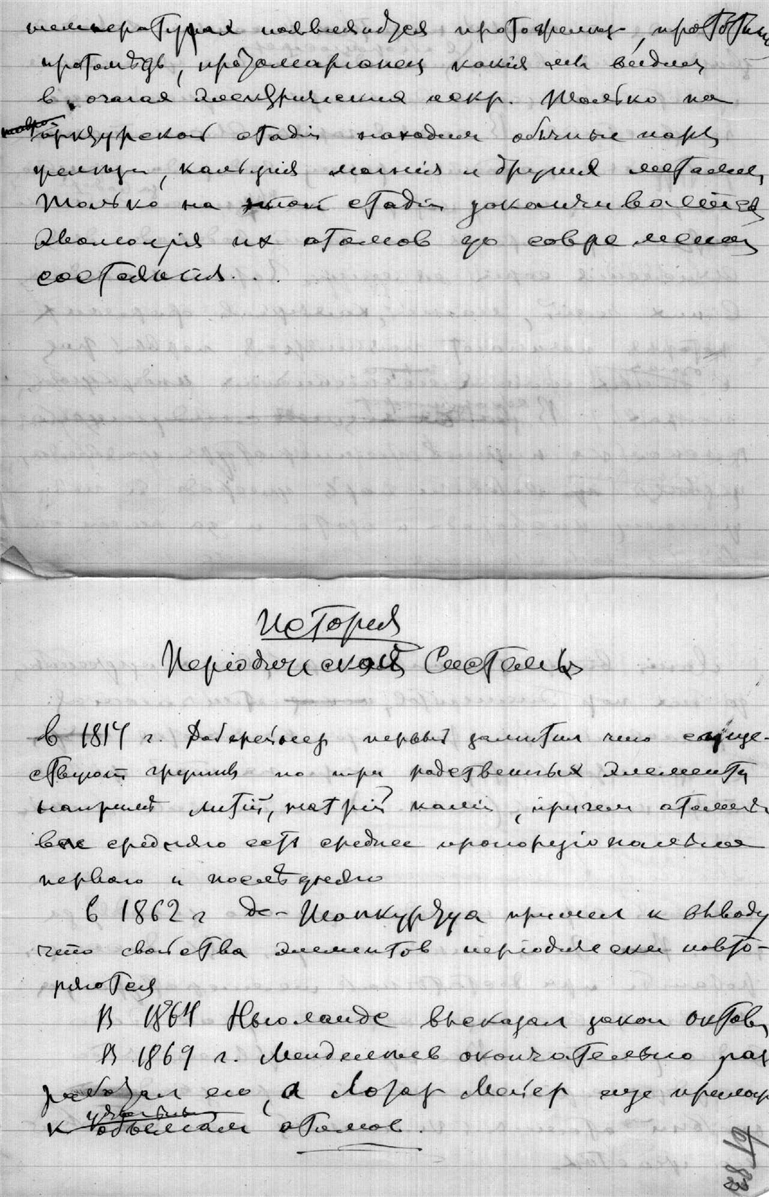 температурах появляются протожелезо, прототитан
протомѣдь, протомагний какия мы видим
в очагах электрических искр. Только на
арктурской стадіи находим обычные пары
железа, кальція, магнія и других металлов
Только на этой стадіи заканчивается
эволюція их атомов до современнаго
состоянія.
Исторія
Періодической Системы
в 1817 г. Доберейнер первый заметил что суще-
ствуют группы по три родственных элемента
например литій, натрій калій, причем атомный
вес средняго есть среднее пропорціональное
перваго и послѣдняго
в 1862 г де-Шанкуртуа пришел к выводу
что свойства элементов періодически повто-
ряются
В 1864 Ньюландс высказал закон октав,
В 1869 г. Менделѣев окончательно раз
работал его, а Лотар Мейер еще
удельным
к объемам атомов.